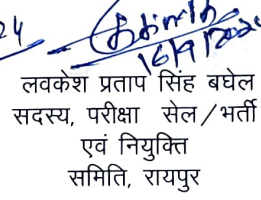 24
16/9/202
लवकेश प्रताप सिंह बघेल
सदस्य, परीक्षा सेल/भर्ती
एवं नियुक्ति
समिति, रायपुर